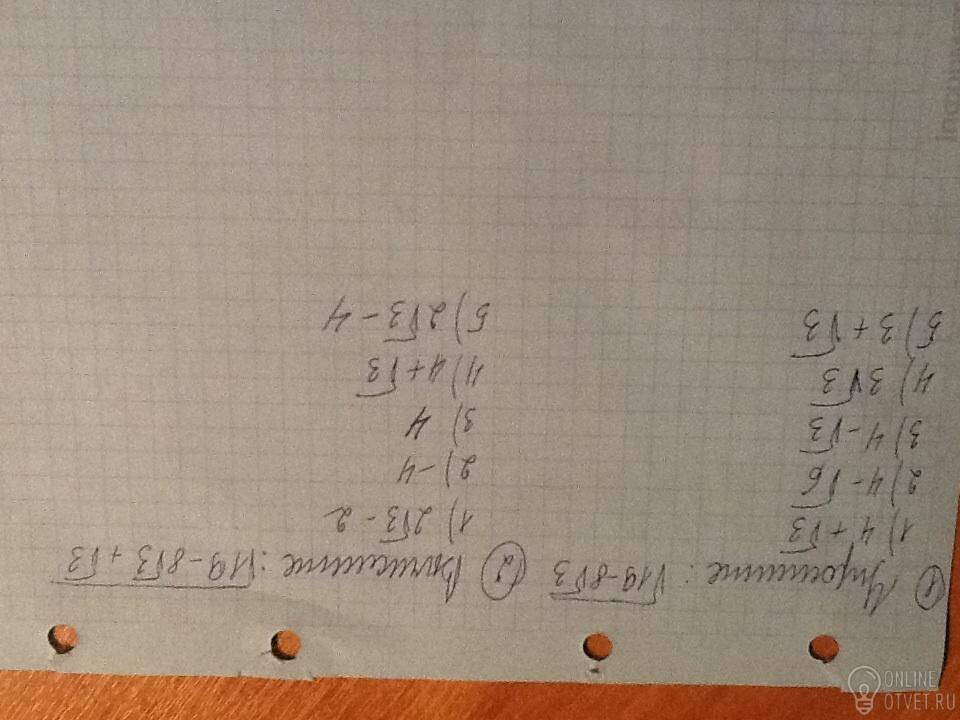 ① Упростите: √19-8√3
1) 4+√3
2) 4-√6
3) 4-√3
4) 3√3
5) 3+√3
② Вычислите: √19-8√3+√3
1) 2√3-2
2) -4
3) 4
4) 4+√3
5) 2√3-4
ONLINE
OTVET.RU